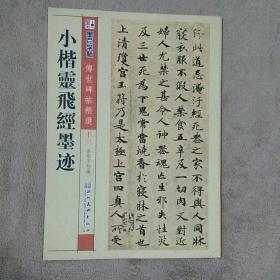 墨点字帖
傳世碑帖精選
十一
小楷靈飛經墨迹
行此道忌淹汙經死喪之家不得與人同牀
寢衣服不假人禁食五辛及一切肉又對近
婦人尤禁之甚令人神喪魂亡生邪失性災
及三世死為下鬼常當燒香於寢牀之首也
上清瓊宮玉符乃是太極上宮四真人所受